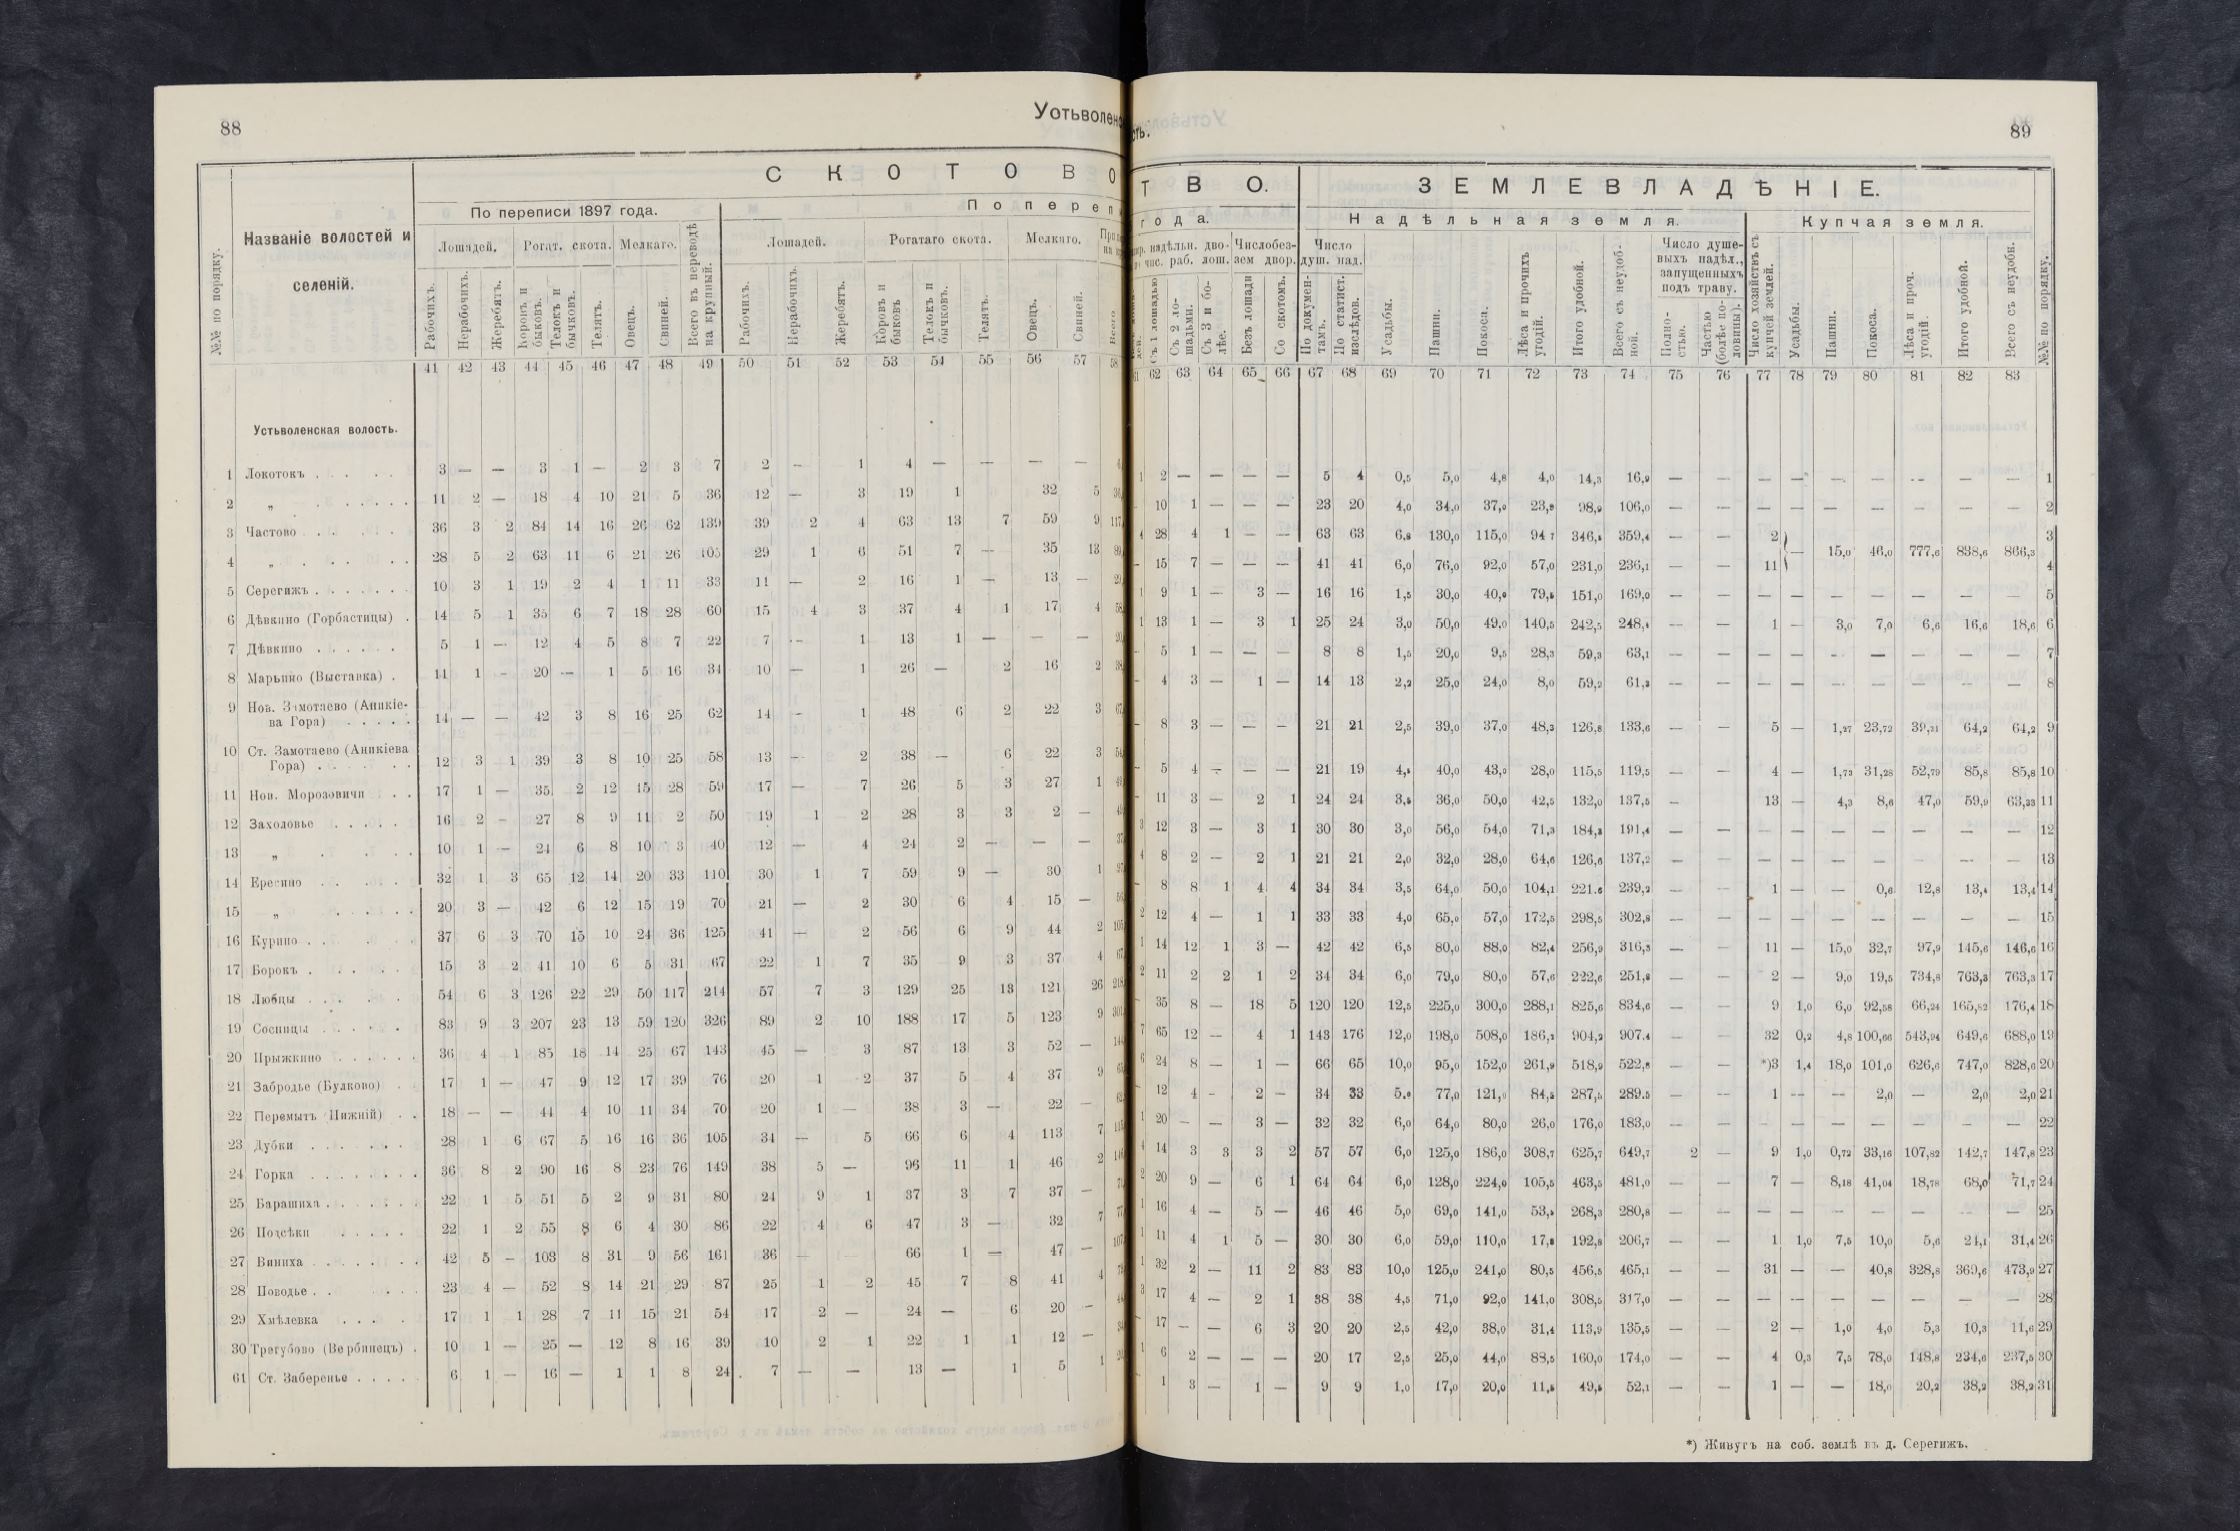 88
Устьволенс
СКОТОВО
Названіе волостей и селеній.
№№ по порядку.
По переписи 1897 года.
По переп
Лошадей. Рогат. скота. Мелкаго.
Всего въ переводѣ на крупный.
Лошадей. Рогатаго скота. Мелкаго.
Рабочихъ. Нерабочихъ. Жеребятъ. Коровъ и быковъ. Телокъ и бычковъ. Телятъ. Овецъ. Свиней.
Рабочихъ. Нерабочихъ. Жеребятъ. Коровъ и быковъ Телокъ и бычковъ. Телятъ. Овецъ. Свиней. Всего
41 42 43 44 45 46 47 48 49 50 51 52 53 54 55 56 57 58
Устьволенская волость.
1 Локотокъ 3 — — 3 1 — 2 3 7 2 — 1 4 — — — —
2 „ 11 2 — 18 4 10 21 5 36 12 — 3 19 1 32 5
3 Частово 36 3 2 84 14 16 26 62 139 39 2 4 63 13 7 59 9
4 „ 28 5 2 63 11 6 21 26 105 29 1 6 51 7 — 35 13
5 Серегижъ 10 3 1 19 2 4 1 11 33 11 — 2 16 1 — 13 —
6 Дѣвкино (Горбастицы) 14 5 1 35 6 7 18 28 60 15 4 3 37 4 1 17 4
7 Дѣвкино 5 1 — 12 4 5 8 7 22 7 — 1 13 1 — — —
8 Марьино (Выставка) 11 1 - 20 — 1 5 16 34 10 — 1 26 — 2 16 2
9 Нов. Замотаево (Аникіе-
ва Гора) 14 — — 42 3 8 16 25 62 14 - 1 48 6 2 22 3
10 Ст. Замотаево (Аникіева
Гора) 12 3 1 39 3 8 10 25 58 13 — 2 38 — 6 22 3
11 Нов. Морозовичи 17 1 — 35 2 12 15 28 59 17 — 7 26 5 3 27 1
12 Захоловье 16 2 - 27 8 9 11 2 50 19 1 2 28 3 3 2 —
13 „ 10 1 — 24 6 8 10 3 40 12 — 4 24 2 — — —
14 Ересино 32 1 3 65 12 14 20 33 110 30 1 7 59 9 — 30 1
15 „ 20 3 — 42 6 12 15 19 70 21 — 2 30 6 4 15 —
16 Курино 37 6 3 70 15 10 24 36 125 41 — 2 56 6 9 44 2
17 Борокъ 15 3 2 41 10 6 5 31 67 22 1 7 35 9 3 37 4
18 Любцы 54 6 3 126 22 29 50 117 214 57 7 3 129 25 13 121 26
19 Сосницы 83 9 3 207 23 13 59 120 326 89 2 10 188 17 5 123 9
20 Прыжкино 36 4 1 85 18 14 25 67 143 45 — 3 87 13 3 52 —
21 Забродье (Булково) 17 1 — 47 9 12 17 39 76 20 1 2 37 5 4 37 9
22 Перемытъ (Нижній) 18 — — 44 4 10 11 34 70 20 1 — 38 3 — 22 —
23 Дубки 28 1 6 67 5 16 16 36 105 34 — 5 66 6 4 113 7
24 Горка 36 8 2 90 16 8 23 76 149 38 5 — 96 11 1 46 2
25 Барашиха 22 1 5 51 5 2 9 31 80 24 9 1 37 3 7 37 —
26 Подсѣки 22 1 2 55 8 6 4 30 86 22 4 6 47 3 — 32 7
27 Виниха 42 5 - 103 8 31 9 56 161 36 — 66 1 — 47 —
28 Поводье 23 4 — 52 8 14 21 29 87 25 1 2 45 7 8 41 4
29 Хмѣлевка 17 1 1 28 7 11 15 21 54 17 2 — 24 — 6 20 -
30 Трегубово (Вербинецъ) 10 1 — 25 — 12 8 16 39 10 2 1 22 1 1 12 —
61 Ст. Заберенье 6 1 — 16 — 1 1 8 24 7 — — 13 — 1 5 1
сть. 89
ТВО. ЗЕМЛЕВЛАДѢНІЕ.
года. Надѣльная земля. Купчая земля.
надѣльн. дво- чис. раб. лош.
Число без- зем двор.
Число душ. над.
Число душе- выхъ надѣл., запущенныхъ подъ траву.
Съ 1 лошадью Съ 2 ло- шадьми. Съ 3 и бо- лѣе. Безъ лошади Со скотомъ. По докумен- тамъ. По статист. изслѣдов. Усадьбы. Пашни. Покоса. Лѣса и прочихъ угодій. Итого удобной. Всего съ неудоб- ной. Полно- стью. Частью (болѣе по- ловины). Число хозяйствъ съ купчей землей. Усадьбы. Пашни. Покоса. Лѣса и проч. угодій. Итого удобной. Всего съ неудобн. №№ по порядку.
61 62 63 64 65 66 67 68 69 70 71 72 73 74 75 76 77 78 79 80 81 82 83
1 2 — — — — 5 4 0,5 5,0 4,8 4,0 14,3 16,9 — — — — — — — — — 1
10 1 — — — 23 20 4,0 34,0 37,0 23,9 98,9 106,0 — — — — — — — — — 2
4 28 4 1 — — 63 63 6,8 130,0 115,0 94 7 346,5 359,4 — — 2 3
— 15,0 46,0 777,6 838,6 866,3
- 15 7 — — — 41 41 6,0 76,0 92,0 57,0 231,0 236,1 — — 11 4
1 9 1 — 3 — 16 16 1,5 30,0 40,0 79,5 151,0 169,0 — — — — — — — — — 5
1 13 1 — 3 1 25 24 3,0 50,0 49,0 140,5 242,5 248,4 — — 1 — 3,0 7,0 6,6 16,6 18,6 6
- 5 1 — — — 8 8 1,5 20,0 9,5 28,3 59,3 63,1 — — — — — — — — — 7
- 4 3 — 1 — 14 13 2,2 25,0 24,0 8,0 59,2 61,3 — — — — — — — — — 8
- 8 3 — — — 21 21 2,5 39,0 37,0 48,3 126,8 133,6 — — 5 — 1,27 23,72 39,21 64,2 64,2 9
- 5 4 — — — 21 19 4,5 40,0 43,0 28,0 115,5 119,5 — — 4 — 1,73 31,28 52,79 85,8 85,8 10
- 11 3 — 2 1 24 24 3,5 36,0 50,0 42,5 132,0 137,5 — 13 — 4,3 8,6 47,0 59,9 63,33 11
3 12 3 — 3 1 30 30 3,0 56,0 54,0 71,3 184,3 191,4 — — — — — — — — — 12
4 8 2 — 2 1 21 21 2,0 32,0 28,0 64,6 126,6 137,2 — — — — — — — — — 13
- 8 8 1 4 4 34 34 3,5 64,0 50,0 104,1 221,6 239,2 — — 1 — — 0,6 12,8 13,4 13,4 14
2 12 4 — 1 1 33 33 4,0 65,0 57,0 172,5 298,5 302,8 — — — — — — — — — 15
1 14 12 1 3 — 42 42 6,5 80,0 88,0 82,4 256,9 316,3 — — 11 — 15,0 32,7 97,9 145,6 146,6 16
2 11 2 2 1 2 34 34 6,0 79,0 80,0 57,6 222,6 251,8 — — 2 — 9,0 19,5 734,8 763,3 763,3 17
- 35 8 — 18 5 120 120 12,5 225,0 300,0 288,1 825,6 834,6 — — 9 1,0 6,0 92,58 66,24 165,82 176,4 18
7 65 12 — 4 1 143 176 12,0 198,0 508,0 186,2 904,2 907,4 — — 32 0,2 4,8 100,66 543,94 649,6 688,0 19
6 24 8 — 1 — 66 65 10,0 95,0 152,0 261,9 518,9 522,8 — — *)3 1,4 18,0 101,0 626,6 747,0 828,6 20
- 12 4 - 2 — 34 33 5,0 77,0 121,0 84,5 287,5 289,5 — — 1 — — 2,0 — 2,0 2,0 21
1 20 - — 3 — 32 32 6,0 64,0 80,0 26,0 176,0 183,0 — — — — — — — — — 22
4 14 3 3 3 2 57 57 6,0 125,0 186,0 308,7 625,7 649,7 2 — 9 1,0 0,72 33,16 107,82 142,7 147,8 23
2 20 9 — 6 1 64 64 6,0 128,0 224,0 105,5 463,5 481,0 — — 7 — 8,18 41,04 18,78 68,0 71,7 24
1 16 4 — 5 — 46 46 5,0 69,0 141,0 53,3 268,3 280,8 — — — — — — — — — 25
1 11 4 1 5 — 30 30 6,0 59,0 110,0 17,8 192,8 206,7 — — 1 1,0 7,5 10,0 5,6 24,1 31,4 26
1 32 2 — 11 2 83 83 10,0 125,0 241,0 80,5 456,5 465,1 — — 31 — — 40,8 328,8 369,6 473,9 27
3 17 4 — 2 1 38 38 4,5 71,0 92,0 141,0 308,5 317,0 — — — — — — — — — 28
- 17 — — 6 3 20 20 2,5 42,0 38,0 31,4 113,9 135,5 — — 2 — 1,0 4,0 5,3 10,3 11,6 29
1 6 2 — — — 20 17 2,5 25,0 44,0 88,5 160,0 174,0 — — 4 0,3 7,5 78,0 148,8 234,6 237,5 30
- 1 3 — 1 — 9 9 1,0 17,0 20,0 11,5 49,5 52,1 — — 1 — — 18,0 20,2 38,2 38,2 31
*) Живутъ на соб. землѣ въ д. Серегижъ.